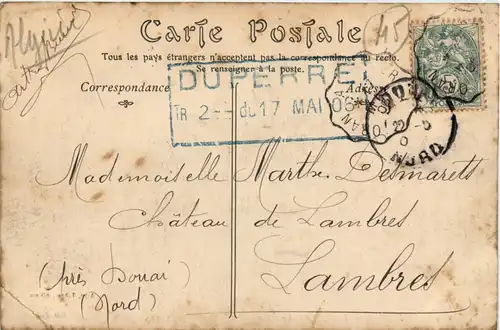 Algérie
45
Carte Postale
Tous les pays étrangers n'acceptent pas la correspondance au recto.
Se renseigner à la poste.
Correspondance
Adresse
DUPERRET
TR 2 du 17 MAI 06
ORAN
NORD
Mademoiselle Marthe Desmarets
Château de Lambres
(près Douai)
Lambres
(Nord)